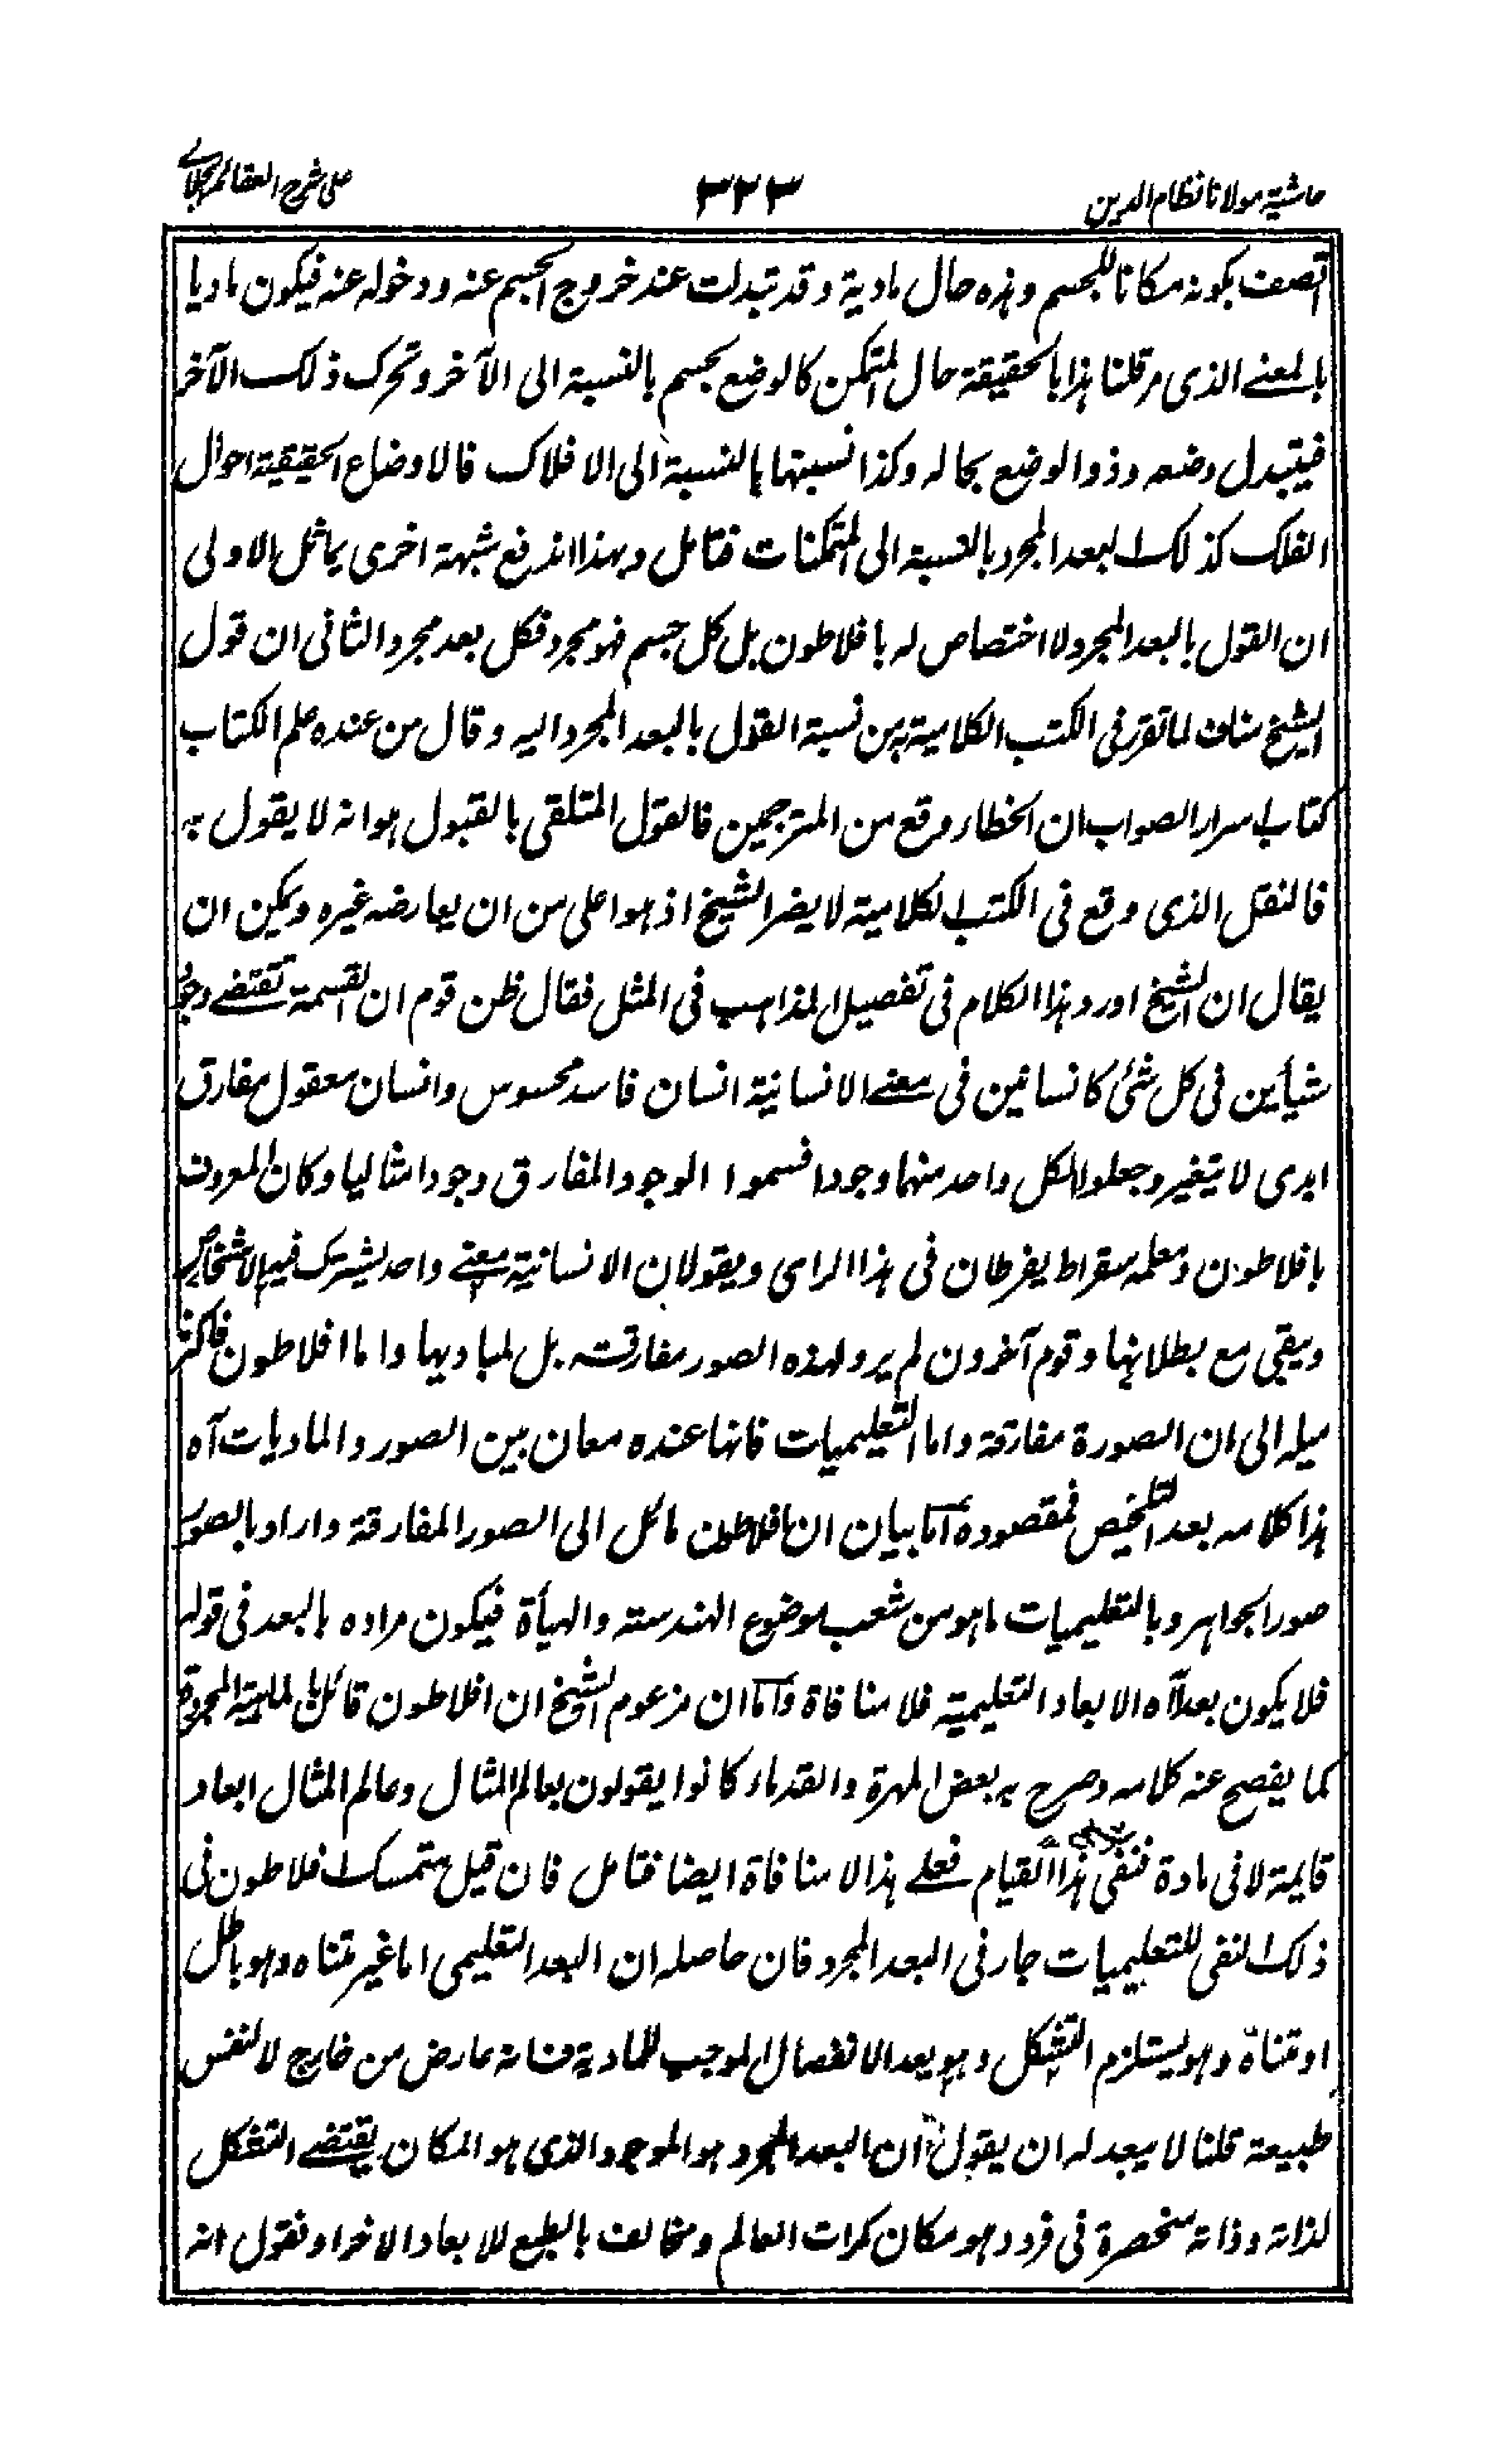 حاشية مولانا نظام الدين
٣٢٣
على شرح العقائد الجلالي
اتصف بكونه مكانا للجسم وهذه حال مادية وقد تبدلت عند خروج الجسم عنه ودخوله عنه فيكون ماديا
بالمعنے الذى مر قلنا هذا بالحقيقة حال المتمكن كالوضع بجسم بالنسبة الى الآخر وتحرك ذلك الآخر
فيتبدل وضعه وذو الوضع بحاله وكذا نسبتها بالنسبة الى الافلاك فالاوضاع الحقيقية احوال
الفلك كذلك البعد المجرد بالنسبة الى المتمكنات فتامل وبهذا اندفع شبهة اخرى يماثل الاولى
ان القول بالبعد المجرد لا اختصاص له بافلاطون بل كل جسم فهو مجرد فكل بعد مجرد الثانى ان قول
الشيخ مناف لما تقرر فى الكتب الكلامية من نسبة القول بالبعد المجرد اليه وقال من عنده علم الكتاب
كتاب اسرار الصواب ان الخطاء وقع من المترجمين فالقول المتلقى بالقبول هو انه لا يقول به
فالنقل الذى وقع فى الكتب الكلامية لا يضر الشيخ اذ هو اعلى من ان يعارضه غيره ويمكن ان
يقال ان الشيخ اورد هذا الكلام فى تفصيل المذاهب فى المثل فقال ظن قوم ان القسمة تقتضے وجود
شيأين فى كل شئ كانسانين فى معنے الانسانية انسان فاسد محسوس وانسان معقول مفارق
ابدى لا يتغير وجعلوا لكل واحد منهما وجودا فسموا الوجود المفارق وجودا مثاليا وكان المعروف
بافلاطون ومعلمه سقراط يفرطان فى هذا الراى ويقولان الانسانية معنے واحد يشترك فيه الاشخاص
ويبقى مع بطلانها وقوم آخرون لم يروا لهذه الصور مفارقة بل لمباديها واما افلاطون فاكثر
ميله الى ان الصورة مفارقة واما التعليميات فانها عنده معان بين الصور والماديات آه
هذا كلامه بعد التلخيص فمقصوده اما بيان ان افلاطون مائل الى الصور المفارقة واراد بالصور
صور الجواهر وبالتعليميات ما هو من شعب موضوع الهندسة والهيأة فيكون مراده بالبعد فى قوله
فلا يكون بعد آه الابعاد التعليمية فلا منافاة واما ان مزعوم الشيخ ان افلاطون قائل بالماهية المجردة
كما يفصح عنه كلامه وصرح به بعض المهرة والقدماء كانوا يقولون بعالم المثال وعالم المثال ابعاد
قايمة لا فى مادة فنفى هذا القيام فعلے هذا لا منافاة ايضا فتامل فان قيل متمسك افلاطون فى
ذلك النفى للتعليميات جار فى البعد المجرد فان حاصله ان البعد التعليمى اما غير متناه وهو باطل
او متناه وهو يستلزم التشكل وهو بعد الانفصال الموجب للمادية فانه عارض من خارج لا لنفس
طبيعة قلنا لا يبعد له ان يقول ان البعد المجرد هو الموجود الذى هو المكان يقتضے التشكل
لذاته وذاته منحصرة فى فرد وهو مكان كرات العالم ومخالف بالطبع للابعاد الاخر او نقول انه